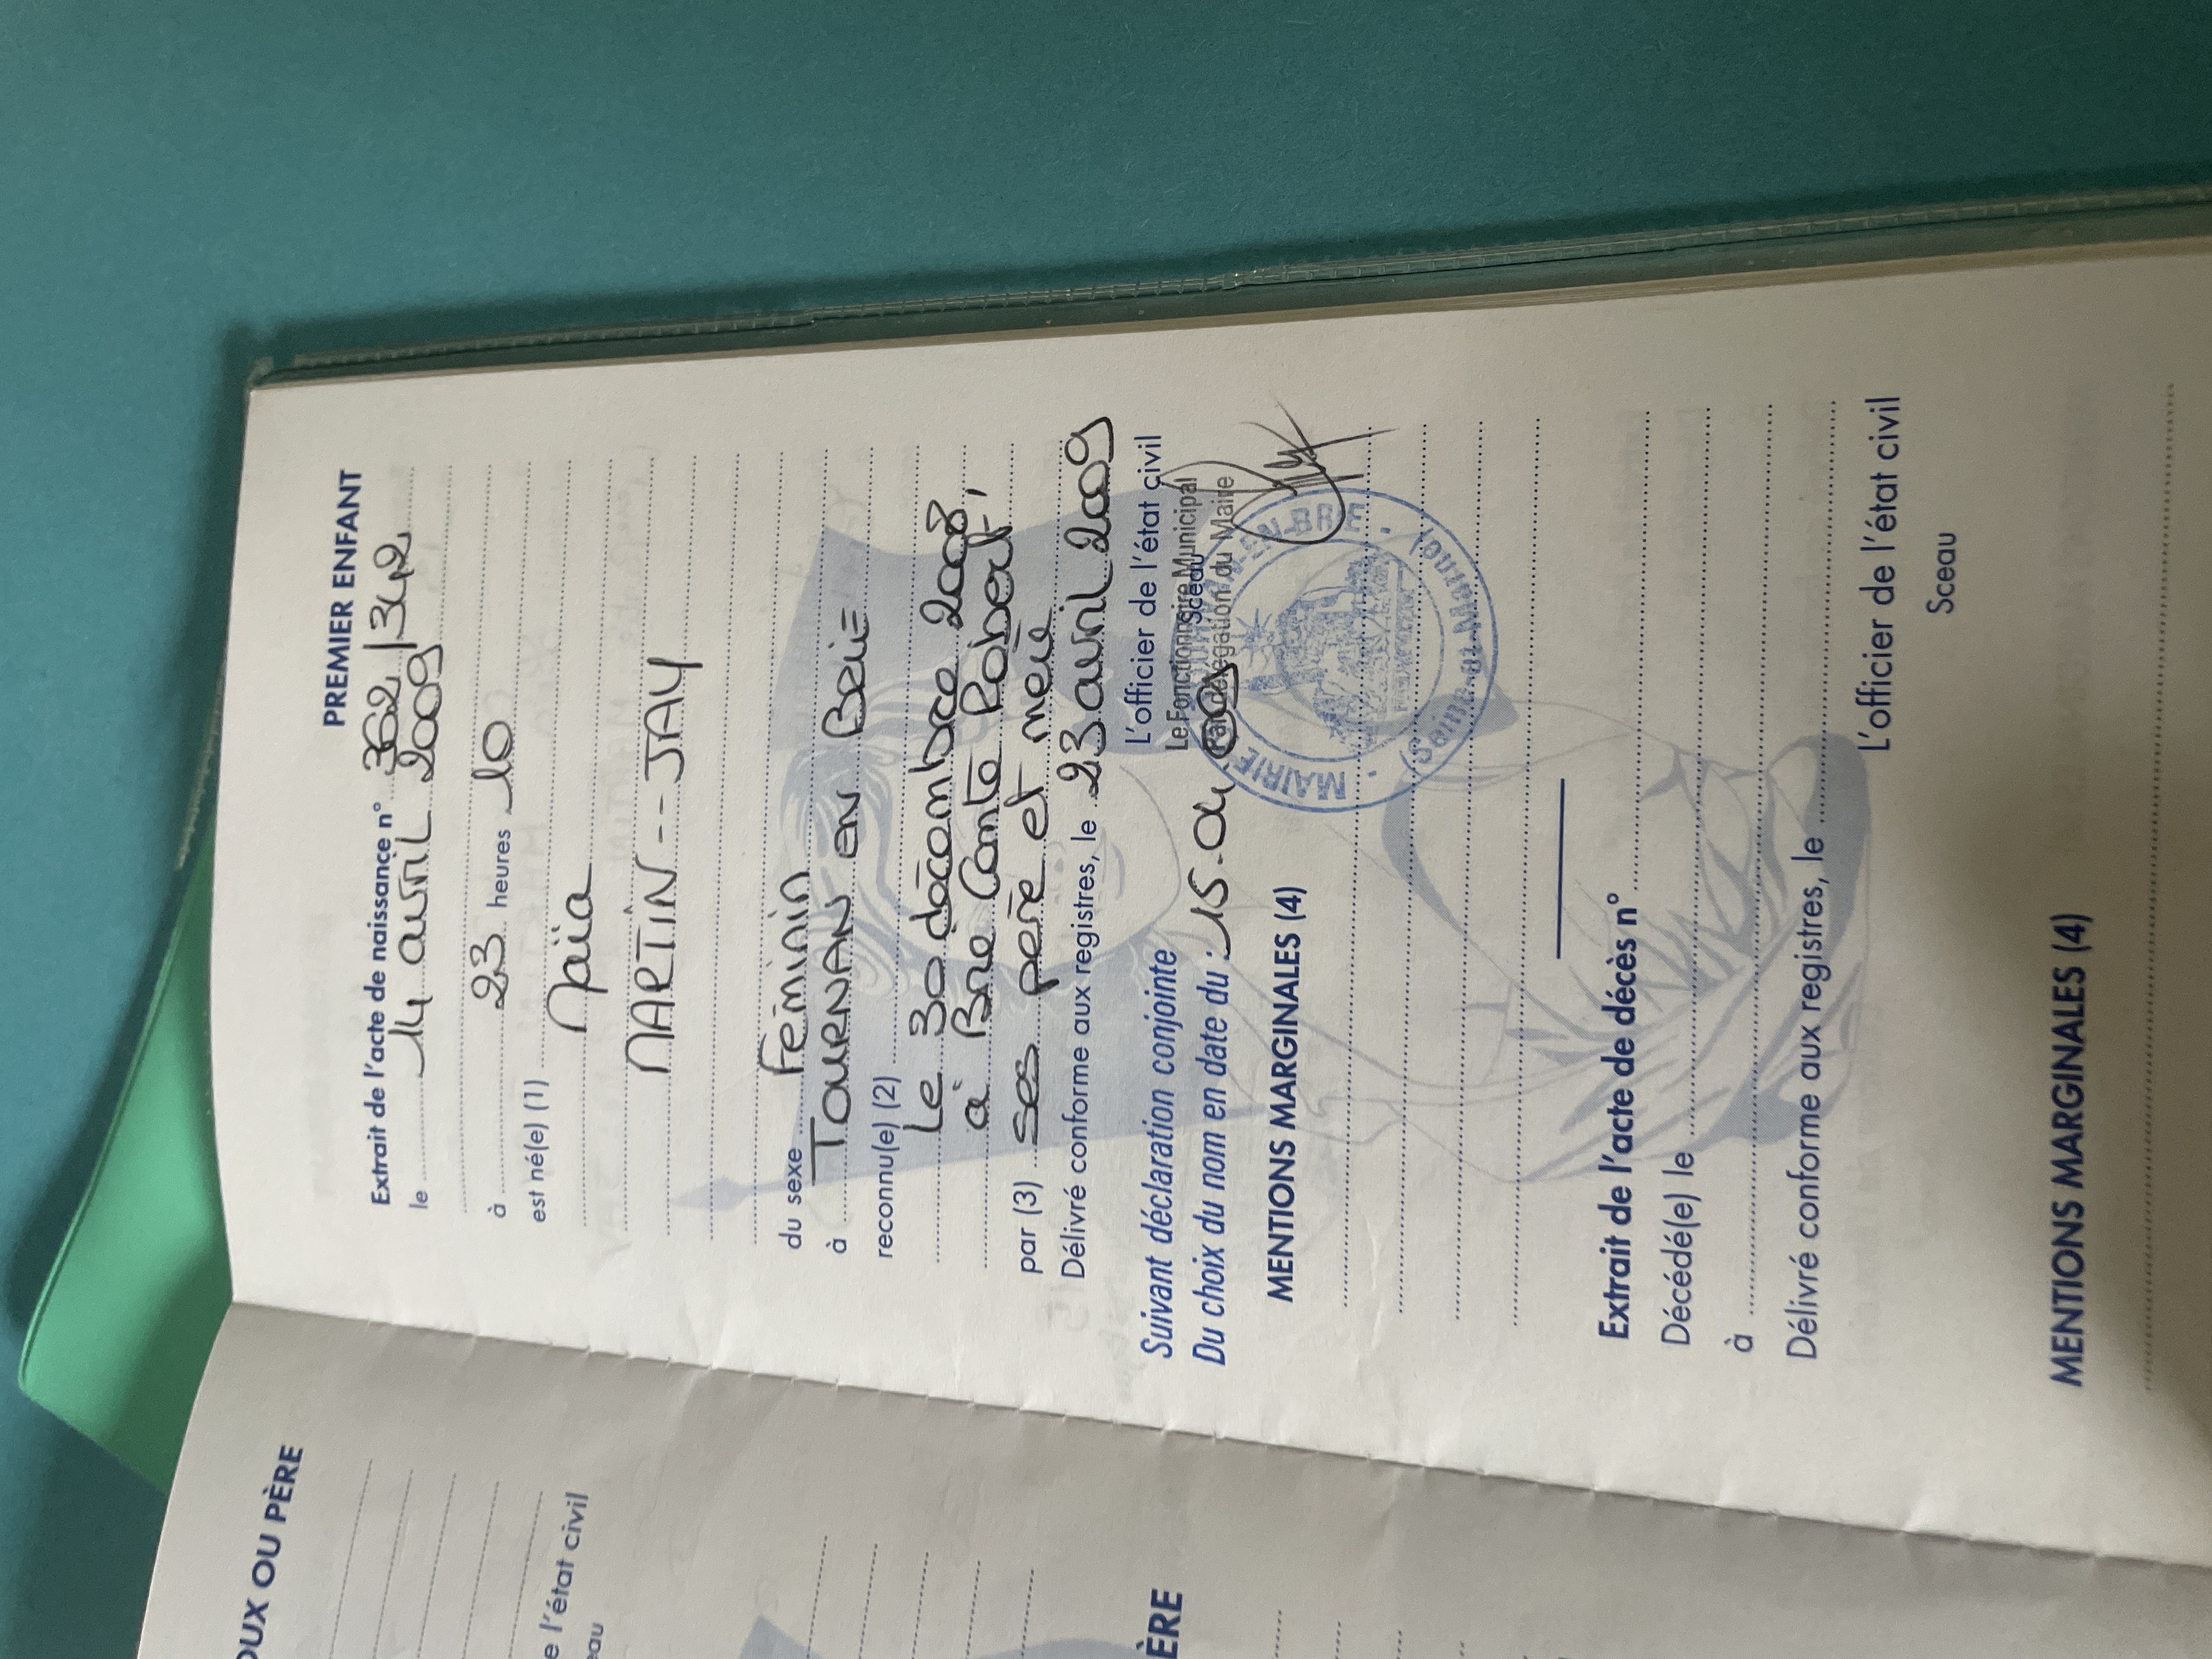 PREMIER ENFANT
Extrait de l'acte de naissance n° 362/342
le 14 avril 2009
à 23 heures 10
est né(e) (1)
Maïa
MARTIN -- JAY
du sexe Féminin
à TOURNAN EN Brie
reconnu(e) (2)
Le 30 décembre 2008
à Brie Comte Robert,
par (3) ses père et mère
Délivré conforme aux registres, le 23 avril 2009
L'officier de l'état civil
Suivant déclaration conjointe
Le Fonctionnaire Municipal
Sceau
Du choix du nom en date du : 15.04.2009
Par délégation du Maire
MAIRIE
EN-BRIE
(Seine-et-Marne)
MENTIONS MARGINALES (4)
Extrait de l'acte de décès n°
Décédé(e) le
à
Délivré conforme aux registres, le
L'officier de l'état civil
Sceau
MENTIONS MARGINALES (4)
OUX OU PÈRE
e l'état civil
eau
ÈRE